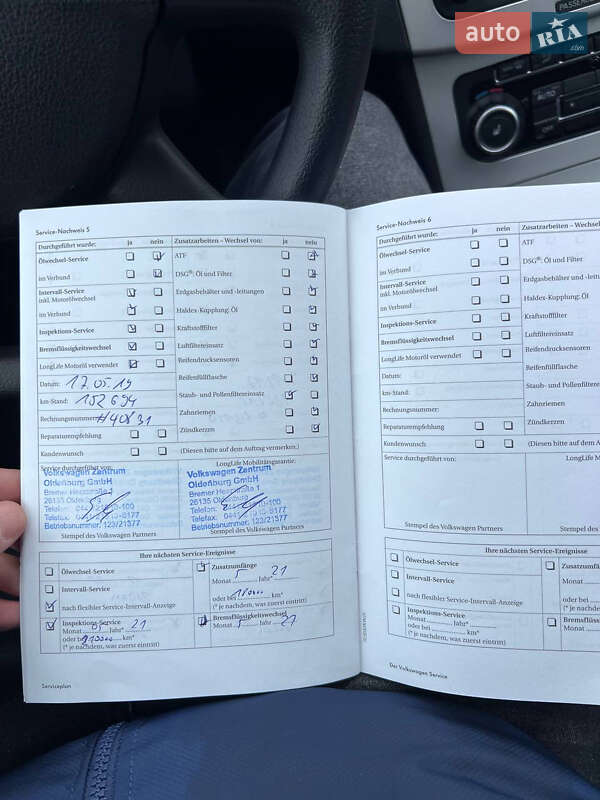 auto RIA .com
PASSENGER
AUTO
OFF
Service-Nachweis 5
Durchgeführt wurde: ja nein
Ölwechsel-Service
im Verbund
Intervall-Service
inkl. Motorölwechsel
im Verbund
Inspektions-Service
Bremsflüssigkeitswechsel
LongLife Motoröl verwendet
Datum: 17.05.19
km-Stand: 152 694
Rechnungsnummer:
Reparaturempfehlung
Kundenwunsch
Zusatzarbeiten – Wechsel von: ja nein
ATF
DSG®: Öl und Filter
Erdgasbehälter und -leitungen
Haldex-Kupplung: Öl
Kraftstofffilter
Luftfiltereinsatz
Reifendrucksensoren
Reifenfüllflasche
Staub- und Pollenfiltereinsatz
Zahnriemen
Zündkerzen
(Diesen bitte auf dem Auftrag vermerken.)
Service durchgeführt von:
Volkswagen Zentrum
Oldenburg GmbH
Bremer Heerstraße 1
26135 Oldenburg
Telefon:
Telefax:
Betriebsnummer: 123/21377
Stempel des Volkswagen Partners
LongLife Mobilitätsgarantie:
Volkswagen Zentrum
Oldenburg GmbH
Bremer Heerstraße 1
26135 Oldenburg
Telefon:
Telefax:
Betriebsnummer: 123/21377
Stempel des Volkswagen Partners
Ihre nächsten Service-Ereignisse
Ölwechsel-Service
Intervall-Service
nach flexibler Service-Intervall-Anzeige
Inspektions-Service
Monat Jahr* 21
oder bei km*
(* je nachdem, was zuerst eintritt)
Zusatzumfänge
Monat 5 Jahr* 21
oder bei km*
(* je nachdem, was zuerst eintritt)
Bremsflüssigkeitswechsel
Monat 5 Jahr 21
Serviceplan
Service-Nachweis 6
Durchgeführt wurde: ja nein
Ölwechsel-Service
im Verbund
Intervall-Service
inkl. Motorölwechsel
im Verbund
Inspektions-Service
Bremsflüssigkeitswechsel
LongLife Motoröl verwendet
Datum:
km-Stand:
Rechnungsnummer:
Reparaturempfehlung
Kundenwunsch
Zusatzarbeiten – Wechsel
ATF
DSG®: Öl und Filter
Erdgasbehälter und -leitungen
Haldex-Kupplung: Öl
Kraftstofffilter
Luftfiltereinsatz
Reifendrucksensoren
Reifenfüllflasche
Staub- und Pollenfiltereinsatz
Zahnriemen
Zündkerzen
(Diesen bitte auf dem Auftrag
Service durchgeführt von:
LongLife Mobi
Stempel des Volkswagen Partners
Stempel
Ihre nächsten Service-Ereignisse
Ölwechsel-Service
Intervall-Service
nach flexibler Service-Intervall-Anzeige
Inspektions-Service
Monat Jahr*
oder bei km*
(* je nachdem, was zuerst eintritt)
Zusatzumf
Monat
oder bei
(* je nachdem
Bremsflüss
Monat
Der Volkswagen Service